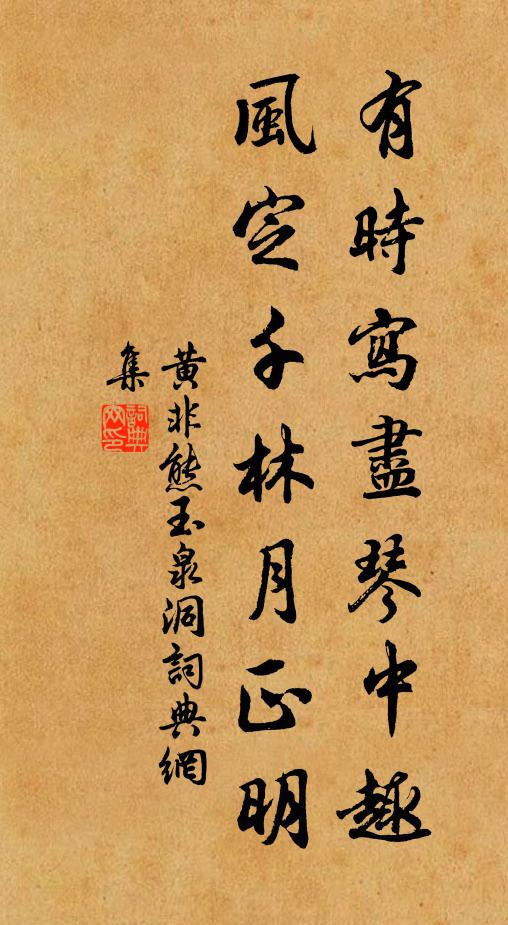 有時寫盡琴中趣
風定千林月正明
黄非熊玉泉洞詞典網
集
詞典網印